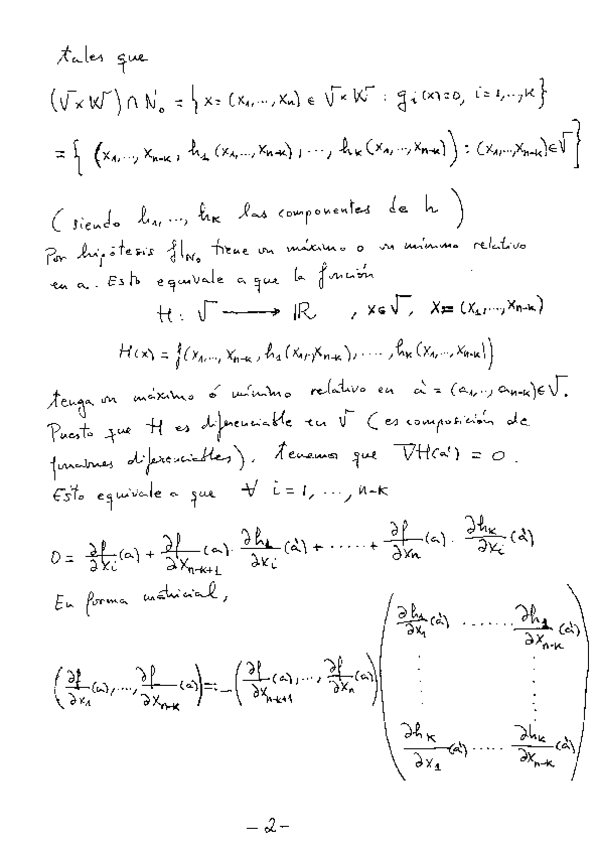 tales que
(V×W) ∩ N₀ = { x = (x₁,…,xₙ) ∈ V×W : gᵢ(x)=0, i=1,…,k }
= { (x₁,…,xₙ₋ₖ, h₁(x₁,…,xₙ₋ₖ),…, hₖ(x₁,…,xₙ₋ₖ)) : (x₁,…,xₙ₋ₖ) ∈ V }
(siendo h₁,…, hₖ las componentes de h)
Por hipótesis f|N₀ tiene un máximo o un mínimo relativo
en a. Esto equivale a que la función
H : V ⟶ ℝ , x ∈ V, x = (x₁,…,xₙ₋ₖ)
H(x) = f(x₁,…, xₙ₋ₖ, h₁(x₁,…,xₙ₋ₖ),…., hₖ(x₁,…,xₙ₋ₖ))
tenga un máximo ó mínimo relativo en a' = (a₁,…, aₙ₋ₖ) ∈ V.
Puesto que H es diferenciable en V (es composición de
funciones diferenciables), tenemos que ∇H(a') = 0.
Esto equivale a que ∀ i = 1, …, n-k
0 = ∂f/∂xᵢ (a) + ∂f/∂xₙ₋ₖ₊₁ (a) · ∂h₁/∂xᵢ (a') + ..... + ∂f/∂xₙ (a) · ∂hₖ/∂xᵢ (a')
En forma matricial,
(∂f/∂x₁ (a),…, ∂f/∂xₙ₋ₖ (a)) = - (∂f/∂xₙ₋ₖ₊₁ (a),…, ∂f/∂xₙ (a)) ( ∂h₁/∂x₁ (a') ....... ∂h₁/∂xₙ₋ₖ (a')
⋮ ⋮
∂hₖ/∂x₁ (a') ..... ∂hₖ/∂xₙ₋ₖ (a') )
- 2 -